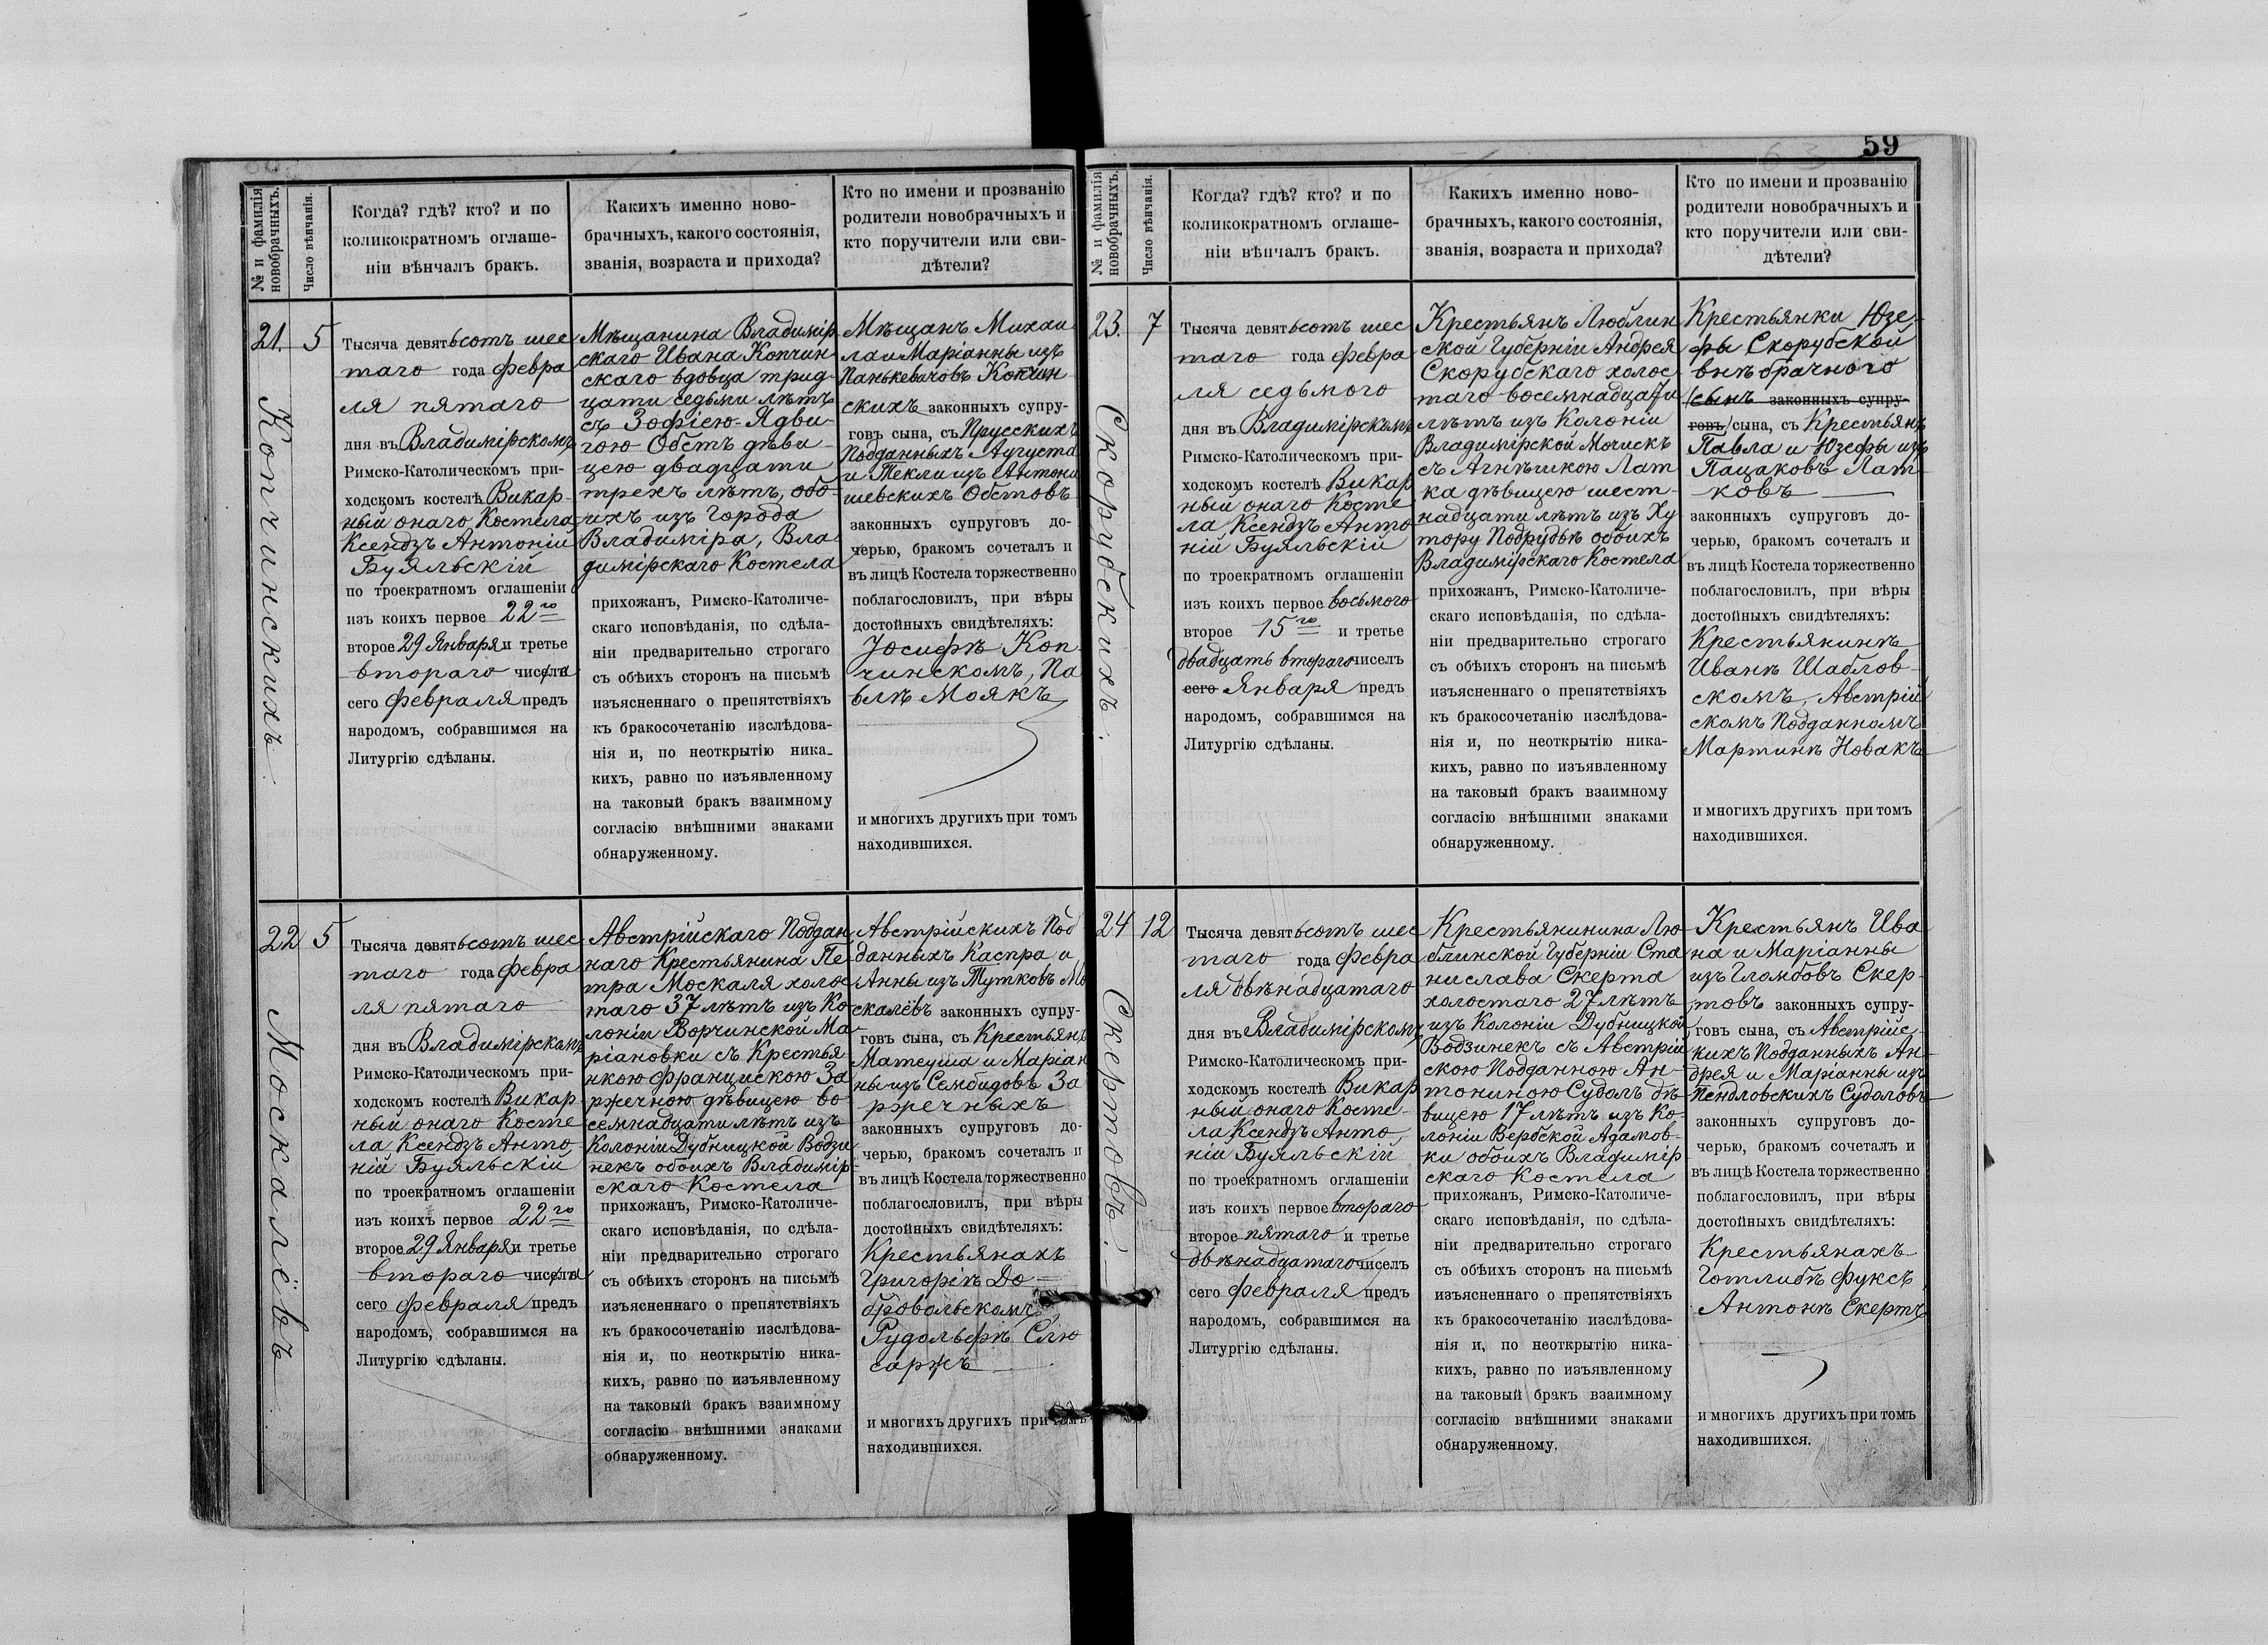 59
№ и фамилія
новобрачныхъ.
Число вѣнчанія.
Когда? гдѣ? кто? и по
коликократномъ оглаше-
ніи вѣнчалъ бракъ.
Какихъ именно ново-
брачныхъ, какого состоянія,
званія, возраста и прихода?
Кто по имени и прозванію
родители новобрачныхъ и
кто поручители или сви-
дѣтели?
21.
Копчинскихъ
5
Тысяча девятьсотъ шес
таго года февра
ля пятаго
дня въ Владимірскомъ
Римско-Католическомъ при-
ходскомъ костелѣ Викар-
ный онаго Костела
Ксендзъ Антоній
Буяльскій
по троекратномъ оглашеніи
изъ коихъ первое 22го
второе 29 Января и третье
втораго числа
сего февраля предъ
народомъ, собравшимся на
Литургію сдѣланы.
Мѣщанина Владимір
скаго Ивана Копчин
скаго вдовца трид-
цати седьми лѣтъ
съ Зофіею-Ядви-
гою Обстъ дѣви-
цею двадцати
трехъ лѣтъ, обо-
ихъ изъ города
Владиміра, Вла-
димірскаго Костела
прихожанъ, Римско-Католиче-
скаго исповѣданія, по сдѣла-
ніи предварительно строгаго
съ обѣихъ сторонъ на письмѣ
изъясненнаго о препятствіяхъ
къ бракосочетанію изслѣдова-
нія и, по неоткрытію ника-
кихъ, равно по изъявленному
на таковый бракъ взаимному
согласію внѣшними знаками
обнаруженному.
Мѣщанъ Михаи
ла и Маріанны изъ
Панькевичовъ Копчин
скихъ законныхъ супру-
говъ сына, съ Прусскихъ
Подданныхъ Августа
и Текли изъ Антони
шевскихъ Обстовъ
законныхъ супруговъ до-
черью, бракомъ сочеталъ и
въ лицѣ Костела торжественно
поблагословилъ, при вѣры
достойныхъ свидѣтеляхъ:
Іосифѣ Коп
чинскомъ, Па
влѣ Моякъ
и многихъ другихъ при томъ
находившихся.
22
Москалёвъ
5
Тысяча девятьсотъ шес
таго года февра
ля пятаго
дня въ Владимірскомъ
Римско-Католическомъ при-
ходскомъ костелѣ Викар
ный онаго Косте
ла Ксендзъ Анто
ній Буяльскій
по троекратномъ оглашеніи
изъ коихъ первое 22го
второе 29 Января и третье
втораго числа
сего февраля предъ
народомъ, собравшимся на
Литургію сдѣланы.
Австрійскаго Поддан
наго Крестьянина Пе-
тра Москаля холос
таго 37 лѣтъ изъ Ко
лоніи Ворчинской Ма-
ріановки съ Крестья
нкою Францискою За
ржечною дѣвицею во
семнадцати лѣтъ изъ
Колоніи Дубницкой Водзи
некъ обоихъ Владимір-
скаго Костела
прихожанъ, Римско-Католиче-
скаго исповѣданія, по сдѣла-
ніи предварительно строгаго
съ обѣихъ сторонъ на письмѣ
изъясненнаго о препятствіяхъ
къ бракосочетанію изслѣдова-
нія и, по неоткрытію ника-
кихъ, равно по изъявленному
на таковый бракъ взаимному
согласію внѣшними знаками
обнаруженному.
Австрійскихъ Под
данныхъ Каспра и
Анны изъ Тутковъ Мо
скалёвъ законныхъ супру-
говъ сына, съ Крестьянъ
Матеуша и Маріан
ны изъ Сембидовъ За
ржечныхъ
законныхъ супруговъ до-
черью, бракомъ сочеталъ и
въ лицѣ Костела торжественно
поблагословилъ, при вѣры
достойныхъ свидѣтеляхъ:
Крестьянахъ
Григоріѣ До-
бровольскомъ,
Рудольфѣ Слю
саржъ
и многихъ другихъ при томъ
находившихся.
№ и фамилія
новобрачныхъ.
Число вѣнчанія.
Когда? гдѣ? кто? и по
коликократномъ оглаше-
ніи вѣнчалъ бракъ.
Какихъ именно ново-
брачныхъ, какого состоянія,
званія, возраста и прихода?
Кто по имени и прозванію
родители новобрачныхъ и
кто поручители или сви-
дѣтели?
23.
Скорубскихъ.
7
Тысяча девятьсотъ шес
таго года февра
ля седьмого
дня въ Владимірскомъ
Римско-Католическомъ при-
ходскомъ костелѣ Викар
ный онаго Косте
ла Ксендзъ Анто
ній Буяльскій
по троекратномъ оглашеніи
изъ коихъ первое восьмого
второе 15го и третье
двадцать втораго чиселъ
сего Января предъ
народомъ, собравшимся на
Литургію сдѣланы.
Крестьянъ Люблин
ской Губерніи Андрея
Скорубскаго холос
таго восемнадцати
лѣтъ изъ Колоніи
Владимірской Мочискъ
съ Агнѣшкою Лат
ка дѣвицею шест-
надцати лѣтъ изъ Ху
тору Подрудье обоихъ
Владимірскаго Костела
прихожанъ, Римско-Католиче-
скаго исповѣданія, по сдѣла-
ніи предварительно строгаго
съ обѣихъ сторонъ на письмѣ
изъясненнаго о препятствіяхъ
къ бракосочетанію изслѣдова-
нія и, по неоткрытію ника-
кихъ, равно по изъявленному
на таковый бракъ взаимному
согласію внѣшними знаками
обнаруженному.
Крестьянки Юзе-
фы Скорубской
внѣбрачного
/сынъ законныхъ супру-
говъ/ сына, съ Крестьянъ
Павла и Юзефы изъ
Пацаковъ Лат-
ковъ
законныхъ супруговъ до-
черью, бракомъ сочеталъ и
въ лицѣ Костела торжественно
поблагословилъ, при вѣры
достойныхъ свидѣтеляхъ:
Крестьянинѣ
Иванѣ Шаблов-
скомъ, Австрій
скомъ Подданномъ
Мартинѣ Новакъ
и многихъ другихъ при томъ
находившихся.
24
Скертовъ.
12
Тысяча девятьсотъ шес
таго года февра
ля двѣнадцатаго
дня въ Владимірскомъ
Римско-Католическомъ при-
ходскомъ костелѣ Викар
ный онаго Косте-
ла Ксендзъ Анто
ній Буяльскій
по троекратномъ оглашеніи
изъ коихъ первое втораго
второе пятаго и третье
двѣнадцатаго чиселъ
сего февраля предъ
народомъ, собравшимся на
Литургію сдѣланы.
Крестьянинина Лю-
блинской Губерніи Ста
нислава Скерта
холостаго 27 лѣтъ
изъ Колоніи Дубницкой
Водзинекъ съ Австрій
скою Подданною Ан-
тониною Судолъ дѣ
вицею 17 лѣтъ изъ Ко-
лоніи Вербской Адамов-
ки обоихъ Владимір
скаго Костела
прихожанъ, Римско-Католиче-
скаго исповѣданія, по сдѣла-
ніи предварительно строгаго
съ обѣихъ сторонъ на письмѣ
изъясненнаго о препятствіяхъ
къ бракосочетанію изслѣдова-
нія и, по неоткрытію ника-
кихъ, равно по изъявленному
на таковый бракъ взаимному
согласію внѣшними знаками
обнаруженному.
Крестьянъ Ива
на и Маріанны
изъ Гломбовъ Скер-
товъ законныхъ супру-
говъ сына, съ Австрійс-
кихъ Подданныхъ Ан-
дрея и Маріанны изъ
Пендловскихъ Судоловъ
законныхъ супруговъ до-
черью, бракомъ сочеталъ и
въ лицѣ Костела торжественно
поблагословилъ, при вѣры
достойныхъ свидѣтеляхъ:
Крестьянахъ
Готлибѣ Фуксъ
Антонѣ Скертъ
и многихъ другихъ при томъ
находившихся.